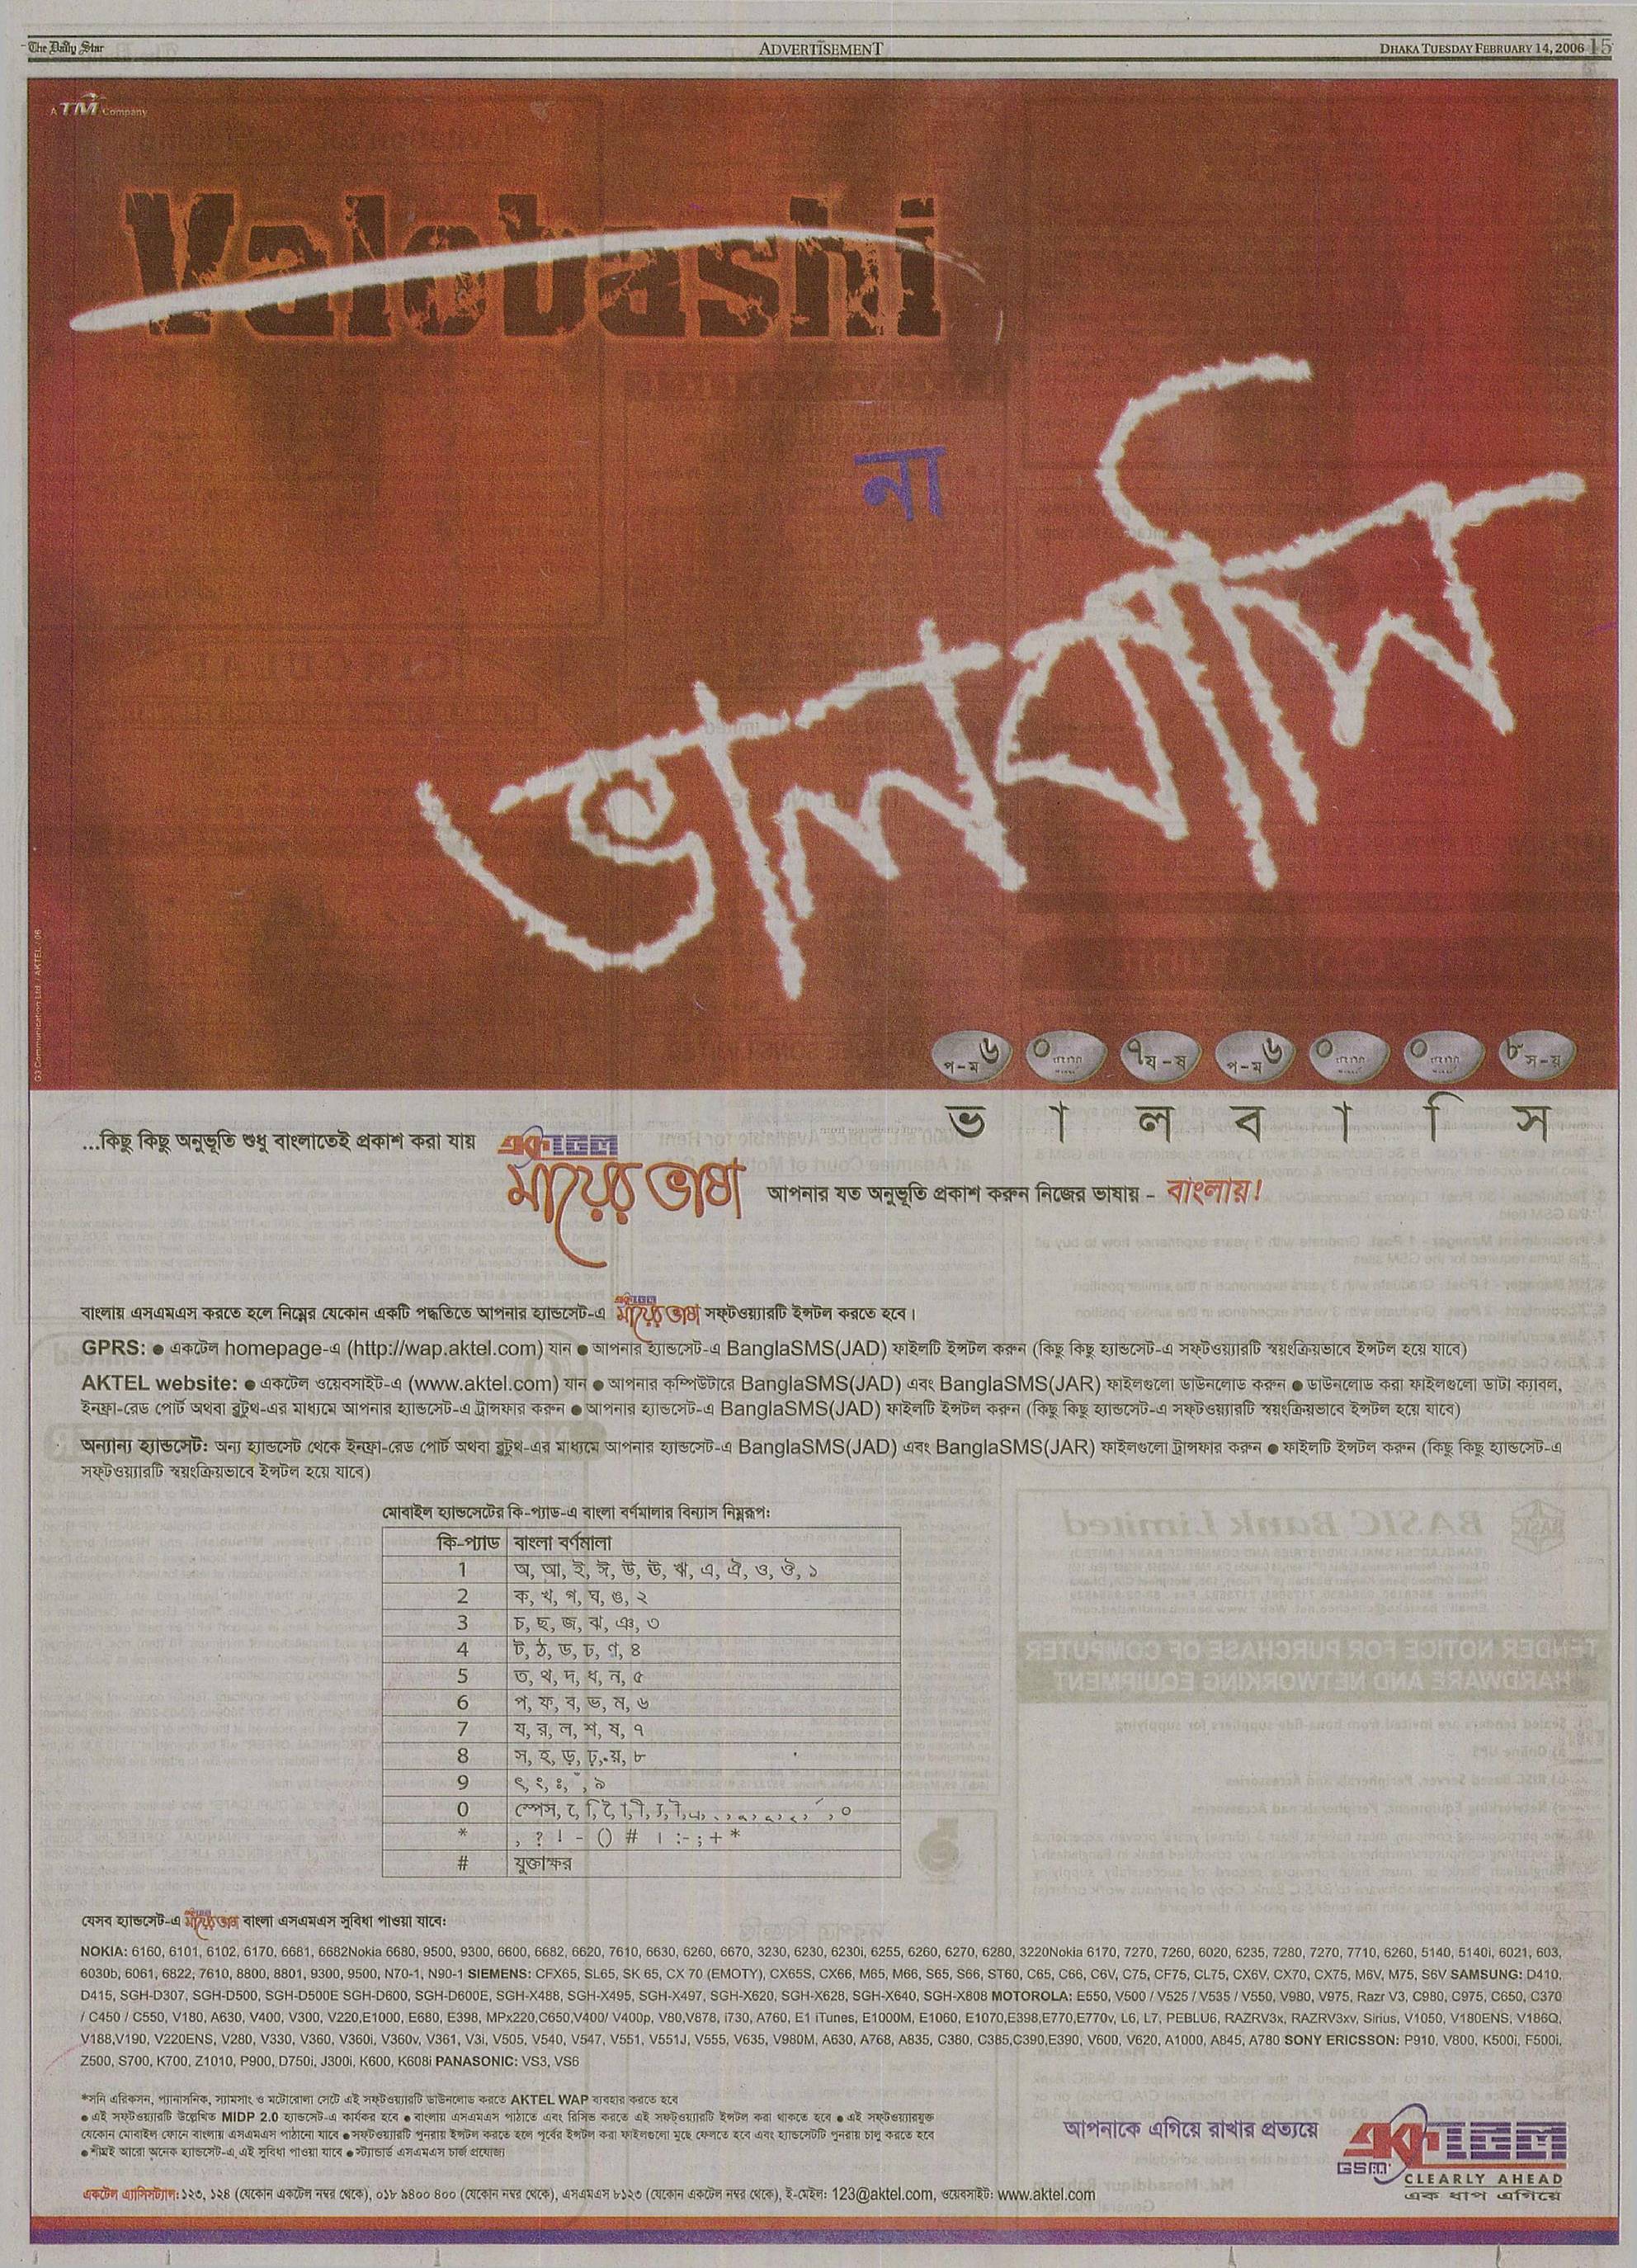 The Daily Star
ADVERTISEMENT
DHAKA TUESDAY FEBRUARY 14, 2006 15
A TM Company
Valobashi
না
ভালবাসি
G3 Communication Ltd. / AKTEL / 06
৬ প-ম ০ ৭ য-ষ ৬ প-ম ০ ০ ৮ স-য়
ভ া ল ব া ি স
...কিছু কিছু অনুভূতি শুধু বাংলাতেই প্রকাশ করা যায়
একটেল
মায়ের ভাষা
আপনার যত অনুভূতি প্রকাশ করুন নিজের ভাষায় - বাংলায়!
বাংলায় এসএমএস করতে হলে নিম্নের যেকোন একটি পদ্ধতিতে আপনার হ্যান্ডসেট-এ একটেল মায়ের ভাষা সফ্টওয়্যারটি ইন্সটল করতে হবে।
GPRS: ● একটেল homepage-এ (http://wap.aktel.com) যান ● আপনার হ্যান্ডসেট-এ BanglaSMS(JAD) ফাইলটি ইন্সটল করুন (কিছু কিছু হ্যান্ডসেট-এ সফ্টওয়্যারটি স্বয়ংক্রিয়ভাবে ইন্সটল হয়ে যাবে)
AKTEL website: ● একটেল ওয়েবসাইট-এ (www.aktel.com) যান ● আপনার কম্পিউটারে BanglaSMS(JAD) এবং BanglaSMS(JAR) ফাইলগুলো ডাউনলোড করুন ● ডাউনলোড করা ফাইলগুলো ডাটা ক্যাবল,
ইনফ্রা-রেড পোর্ট অথবা ব্লুটুথ-এর মাধ্যমে আপনার হ্যান্ডসেট-এ ট্রান্সফার করুন ● আপনার হ্যান্ডসেট-এ BanglaSMS(JAD) ফাইলটি ইন্সটল করুন (কিছু কিছু হ্যান্ডসেট-এ সফ্টওয়্যারটি স্বয়ংক্রিয়ভাবে ইন্সটল হয়ে যাবে)
অন্যান্য হ্যান্ডসেট: অন্য হ্যান্ডসেট থেকে ইনফ্রা-রেড পোর্ট অথবা ব্লুটুথ-এর মাধ্যমে আপনার হ্যান্ডসেট-এ BanglaSMS(JAD) এবং BanglaSMS(JAR) ফাইলগুলো ট্রান্সফার করুন ● ফাইলটি ইন্সটল করুন (কিছু কিছু হ্যান্ডসেট-এ
সফ্টওয়্যারটি স্বয়ংক্রিয়ভাবে ইন্সটল হয়ে যাবে)
মোবাইল হ্যান্ডসেটের কি-প্যাড-এ বাংলা বর্ণমালার বিন্যাস নিম্নরূপ:
কি-প্যাড বাংলা বর্ণমালা
1 অ, আ, ই, ঈ, উ, ঊ, ঋ, এ, ঐ, ও, ঔ, ১
2 ক, খ, গ, ঘ, ঙ, ২
3 চ, ছ, জ, ঝ, ঞ, ৩
4 ট, ঠ, ড, ঢ, ণ, ৪
5 ত, থ, দ, ধ, ন, ৫
6 প, ফ, ব, ভ, ম, ৬
7 য, র, ল, শ, ষ, ৭
8 স, হ, ড়, ঢ়, য়, ৮
9 ৎ, ং, ঃ, ঁ, ৯
0 স্পেস, ০
* , ? ! - () # । :- ; + *
# যুক্তাক্ষর
যেসব হ্যান্ডসেট-এ মায়ের ভাষা বাংলা এসএমএস সুবিধা পাওয়া যাবে:
NOKIA: 6160, 6101, 6102, 6170, 6681, 6682Nokia 6680, 9500, 9300, 6600, 6682, 6620, 7610, 6630, 6260, 6670, 3230, 6230, 6230i, 6255, 6260, 6270, 6280, 3220Nokia 6170, 7270, 7260, 6020, 6235, 7280, 7270, 7710, 6260, 5140, 5140i, 6021, 603,
6030b, 6061, 6822, 7610, 8800, 8801, 9300, 9500, N70-1, N90-1 SIEMENS: CFX65, SL65, SK 65, CX 70 (EMOTY), CX65S, CX66, M65, M66, S65, S66, ST60, C65, C66, C6V, C75, CF75, CL75, CX6V, CX70, CX75, M6V, M75, S6V SAMSUNG: D410,
D415, SGH-D307, SGH-D500, SGH-D500E SGH-D600, SGH-D600E, SGH-X488, SGH-X495, SGH-X497, SGH-X620, SGH-X628, SGH-X640, SGH-X808 MOTOROLA: E550, V500 / V525 / V535 / V550, V980, V975, Razr V3, C980, C975, C650, C370
/ C450 / C550, V180, A630, V400, V300, V220,E1000, E680, E398, MPx220,C650,V400/ V400p, V80,V878, i730, A760, E1 iTunes, E1000M, E1060, E1070,E398,E770,E770v, L6, L7, PEBLU6, RAZRV3x, RAZRV3xv, Sirius, V1050, V180ENS, V186Q,
V188,V190, V220ENS, V280, V330, V360, V360i, V360v, V361, V3i, V505, V540, V547, V551, V551J, V555, V635, V980M, A630, A768, A835, C380, C385,C390,E390, V600, V620, A1000, A845, A780 SONY ERICSSON: P910, V800, K500i, F500i,
Z500, S700, K700, Z1010, P900, D750i, J300i, K600, K608i PANASONIC: VS3, VS6
*সনি এরিকসন, প্যানাসনিক, স্যামসাং ও মটোরোলা সেটে এই সফ্টওয়্যারটি ডাউনলোড করতে AKTEL WAP ব্যবহার করতে হবে
● এই সফ্টওয়্যারটি উল্লেখিত MIDP 2.0 হ্যান্ডসেট-এ কার্যকর হবে ● বাংলায় এসএমএস পাঠাতে এবং রিসিভ করতে এই সফ্টওয়্যারটি ইন্সটল করা থাকতে হবে ● এই সফ্টওয়্যারযুক্ত
যেকোন মোবাইল ফোনে বাংলায় এসএমএস পাঠানো যাবে ● সফ্টওয়্যারটি পুনরায় ইন্সটল করতে হলে পূর্বের ইন্সটল করা ফাইলগুলো মুছে ফেলতে হবে এবং হ্যান্ডসেটটি পুনরায় চালু করতে হবে
● শীঘ্রই আরো অনেক হ্যান্ডসেট-এ এই সুবিধা পাওয়া যাবে ● স্ট্যান্ডার্ড এসএমএস চার্জ প্রযোজ্য
আপনাকে এগিয়ে রাখার প্রত্যয়ে
একটেল
GSM
CLEARLY AHEAD
এক ধাপ এগিয়ে
একটেল এ্যাসিসট্যান্স: ১২৩, ১২৪ (যেকোন একটেল নম্বর থেকে), ০১৮ ৯৪০০ ৪০০ (যেকোন নম্বর থেকে), এসএমএস ৮১২৩ (যেকোন একটেল নম্বর থেকে), ই-মেইল: 123@aktel.com, ওয়েবসাইট: www.aktel.com